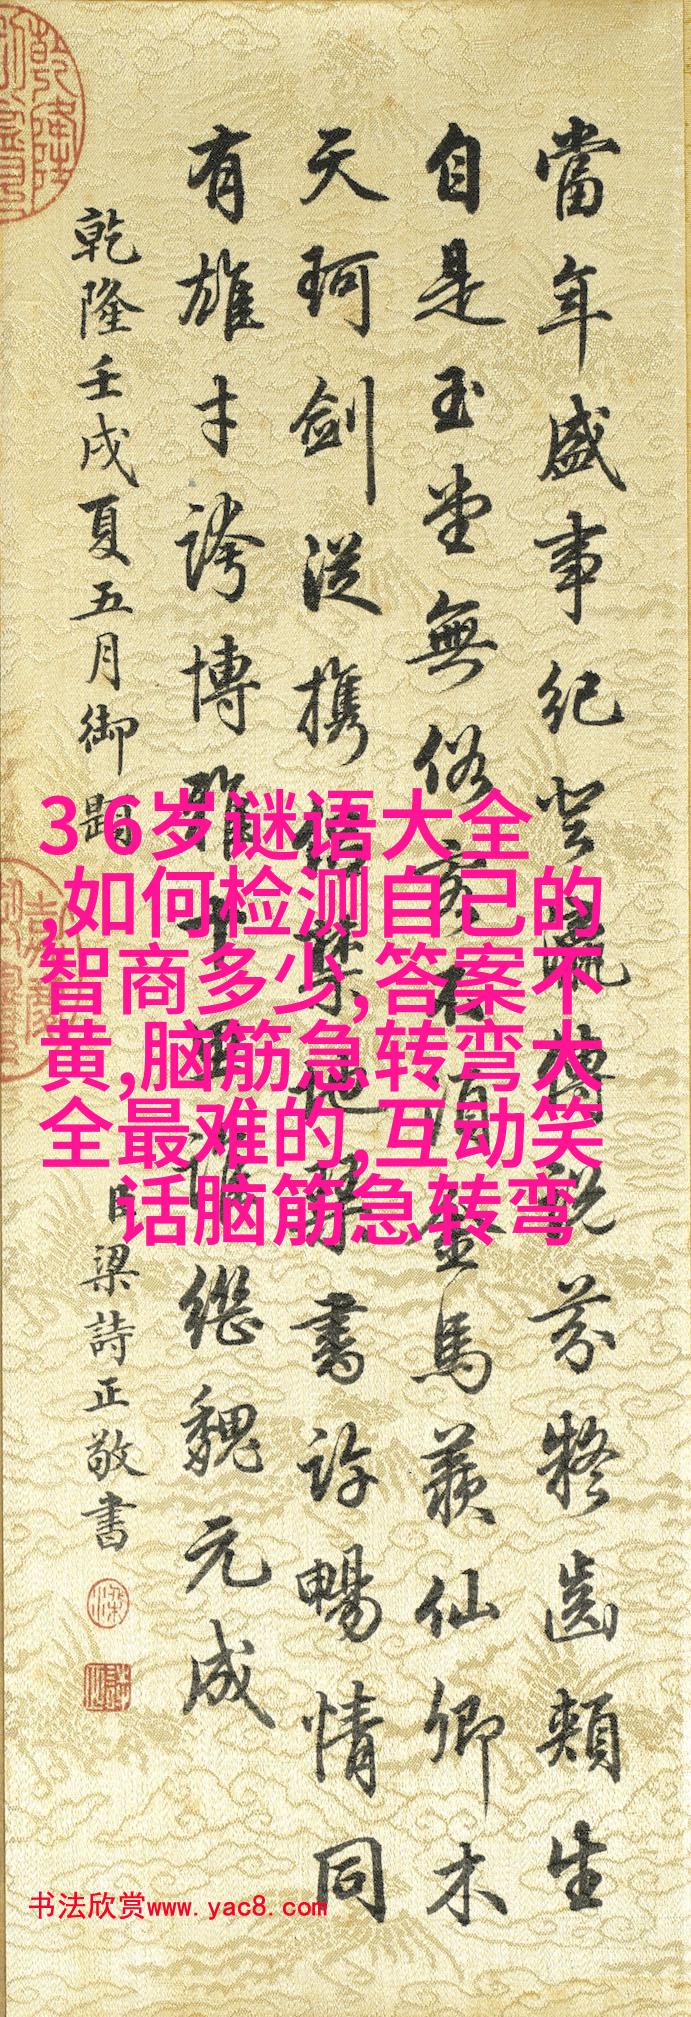 當年盛事紀登瀛說芬齒頰生
自是玉堂無俗客不須金馬羨仙卿木
天珂劍從攜禁地琴書許暢情同
有雄才誇博雅誰繼魏元成
乾隆壬戌夏五月御題
臣梁詩正敬書
36岁谜语大全
,如何检测自己的
智商多少,答案不
黄,脑筋急转弯大
全最难的,互动笑
话脑筋急转弯
书法欣赏www.yac8.com